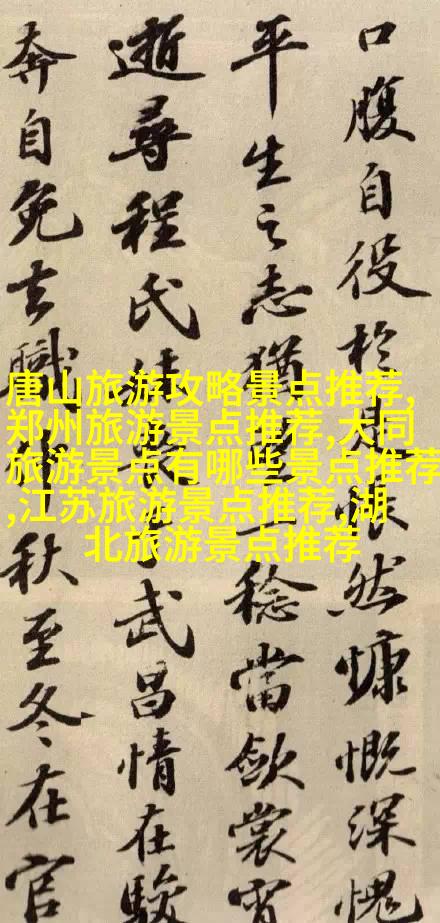 口腹自役於是悵然慷慨深愧
平生之志猶望一稔當斂裳宵
逝尋程氏妹喪于武昌情在駿
奔自免去職仲秋至冬在官
唐山旅游攻略景点推荐,
郑州旅游景点推荐,大同
旅游景点有哪些景点推荐
,江苏旅游景点推荐,湖
北旅游景点推荐